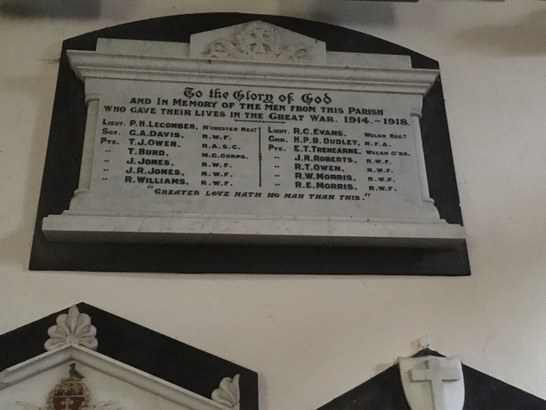 To the Glory of God
AND IN MEMORY OF THE MEN FROM THIS PARISH
WHO GAVE THEIR LIVES IN THE GREAT WAR. 1914.–1918.
LIEUT. P.H. LECOMBER, M'CHESTER REGT
SGT. G.A. DAVIS, R.W.F.
PTE. T.J. OWEN, R.A.S.C.
" T. BURD, M.G. CORPS.
" J. JONES, R.W.F.
" J.R. JONES, R.W.F.
" R. WILLIAMS, R.W.F.
LIEUT. R.C. EVANS, WELSH REGT
GNR. H.P.B. DUDLEY, R.F.A.
PTE. E.T. TREHEARNE, WELSH G'DS.
" J.R. ROBERTS, R.W.F.
" R.T. OWEN, R.W.F.
" R.W. MORRIS, R.W.F.
" R.E. MORRIS, R.W.F.
"GREATER LOVE HATH NO MAN THAN THIS."